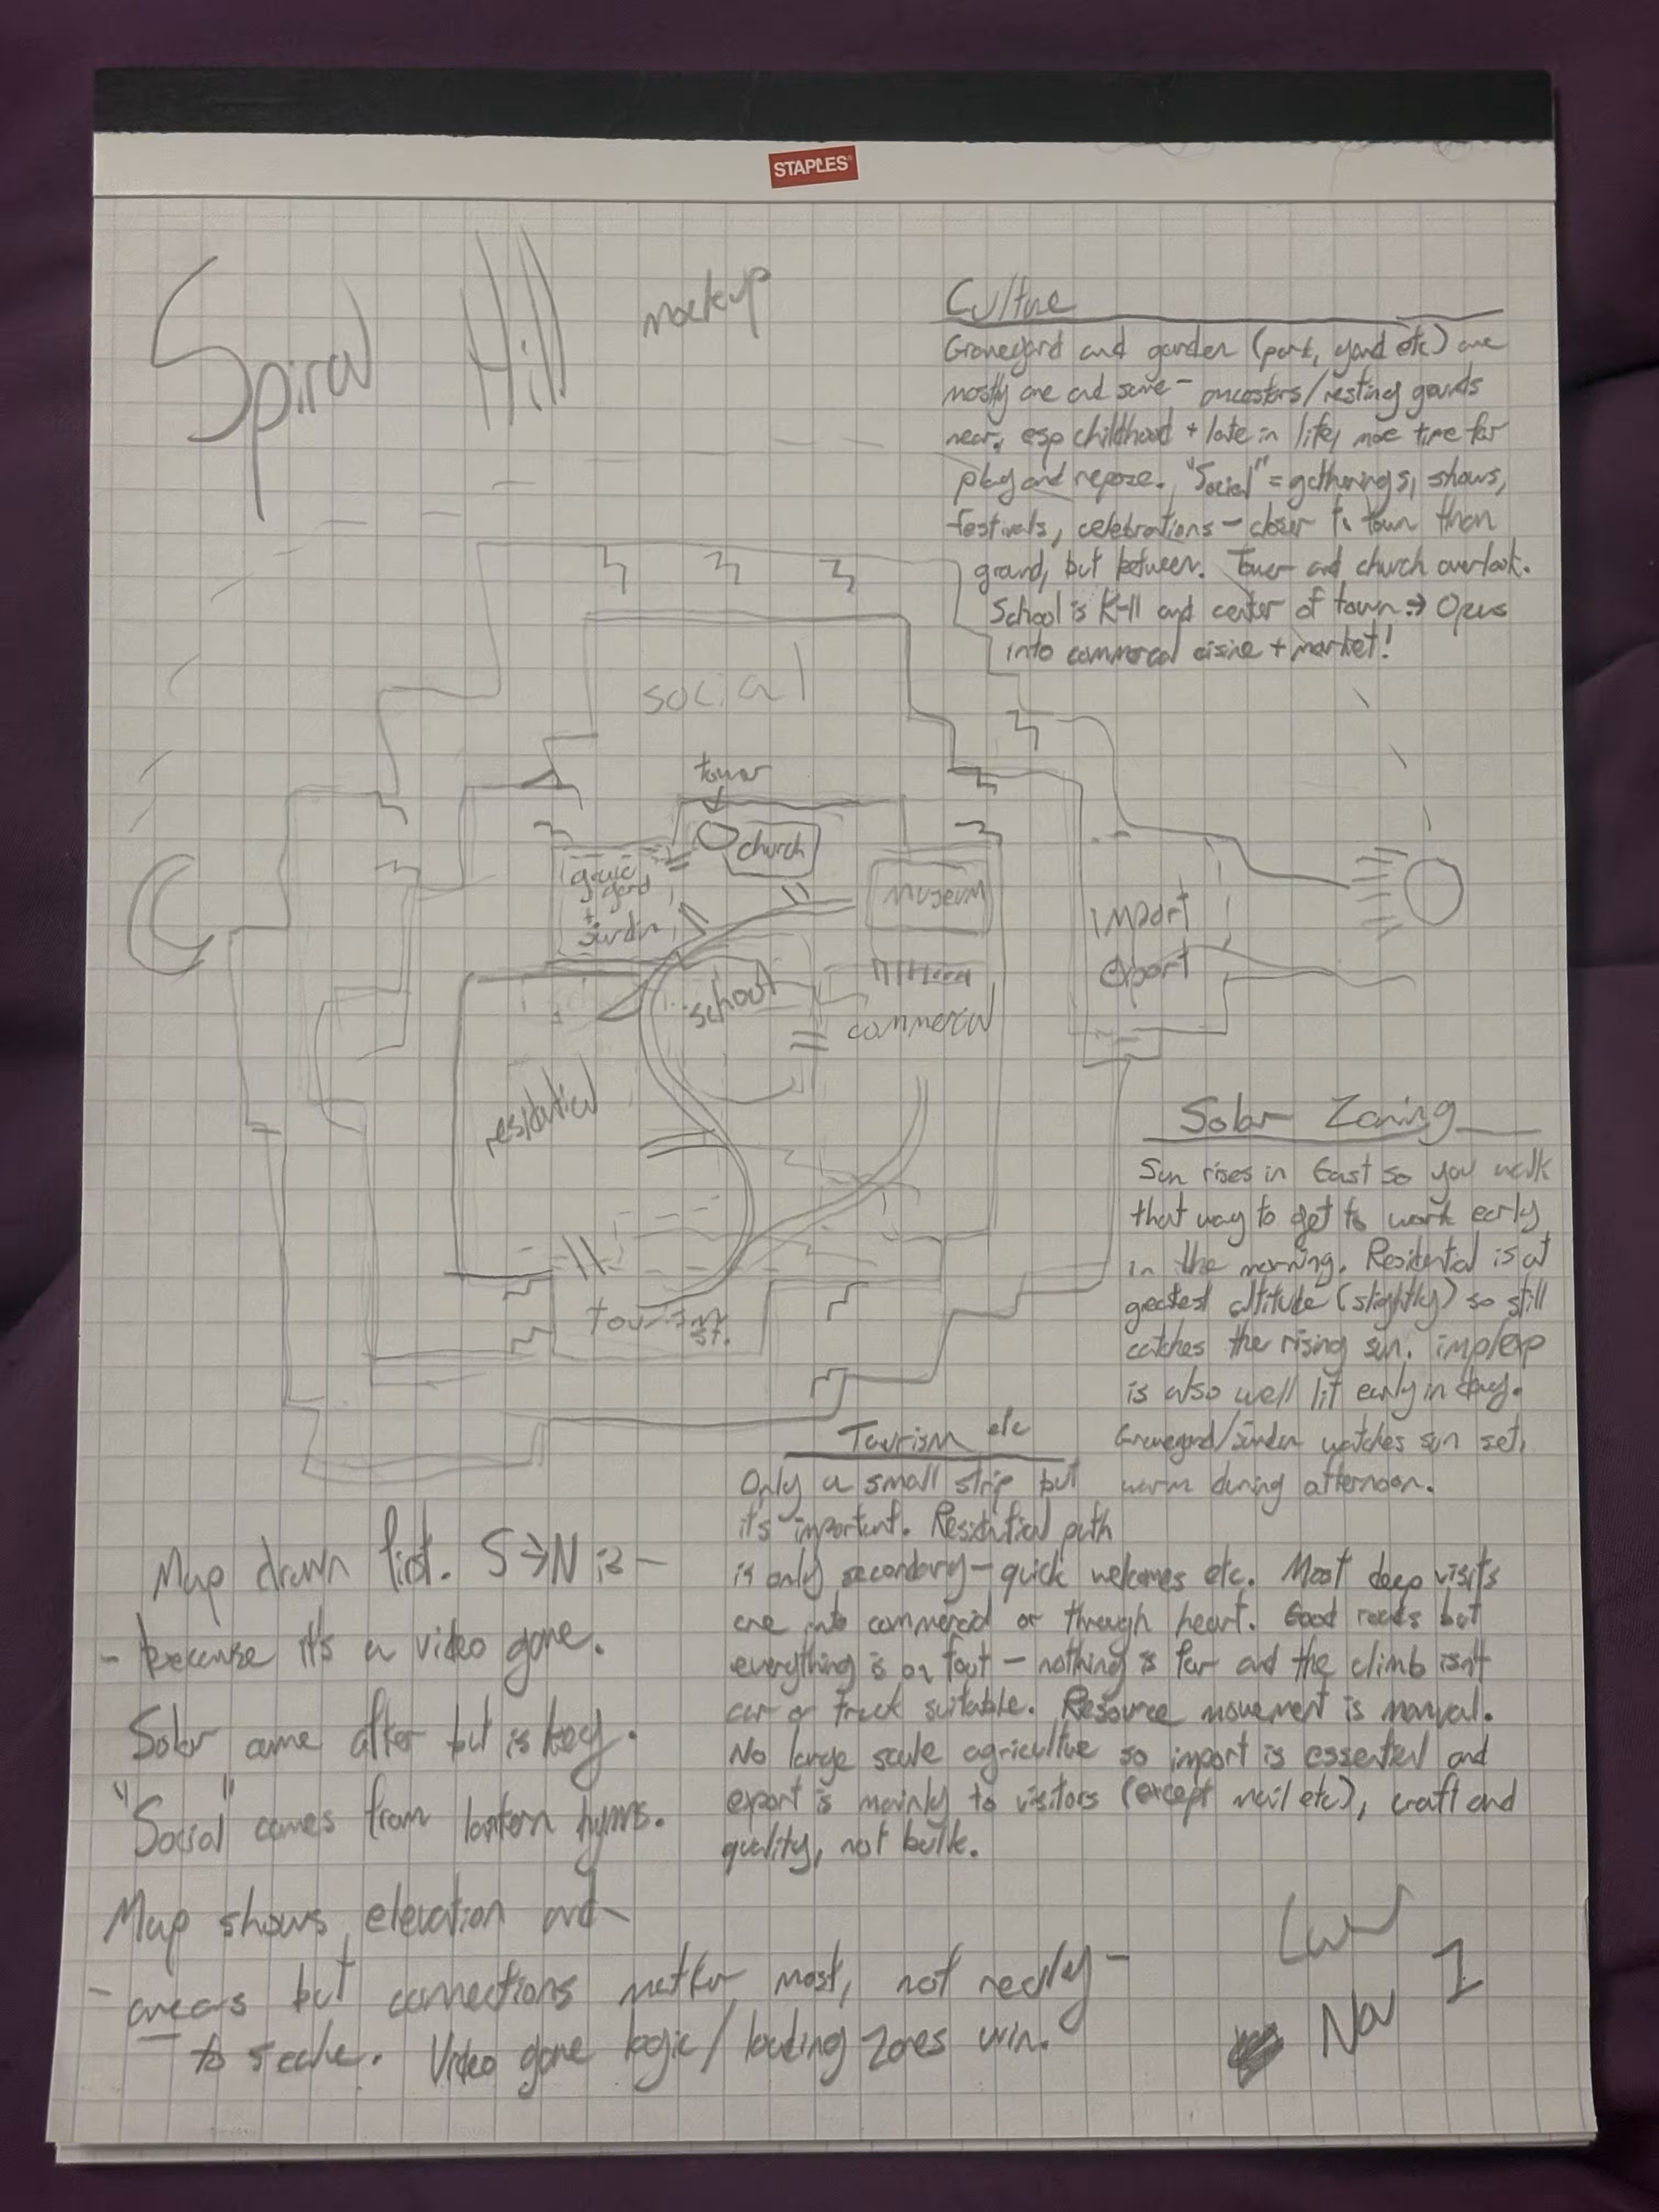 STAPLES
Spiral Hill mockup
Culture
Graveyard and garden (park, yard etc) are
mostly one and same - ancestors/resting grounds
near, esp childhood + late in life, more time for
play and repose. "Social" = gatherings, shows,
festivals, celebrations - closer to town than
grand, but between. Tower and church overlook.
School is K-11 and center of town → Opus
into commercal + market!
social
tower
church
grave
yard
+
jardin
museum
import
export
school
commercial
residential
tourism
st.
Solar Zoning
Sun rises in East so you walk
that way to get to work early
in the morning. Residential is at
greatest altitude (slightly) so still
catches the rising sun. imp/exp
is also well lit early in day.
Graveyard/jardin watches sun set,
warm during afternoon.
Tourism etc
Only a small strip but
it's important. Residential path
is only secondary - quick welcomes etc. Most deep visits
are into commercial or through heart. Good roads but
everything is on foot - nothing is far and the climb isn't
car or truck suitable. Resource movement is manual.
No large scale agriculture so import is essential and
export is mainly to visitors (except mail etc), craft and
quality, not bulk.
Map drawn first. S→N is -
- because it's a video game.
Solar came after but is key.
"Social" comes from lantern hymns.
Map shows elevation and -
- areas but connections matter most, not really -
to scale. Video game logic/loading zones win.
Nov 1